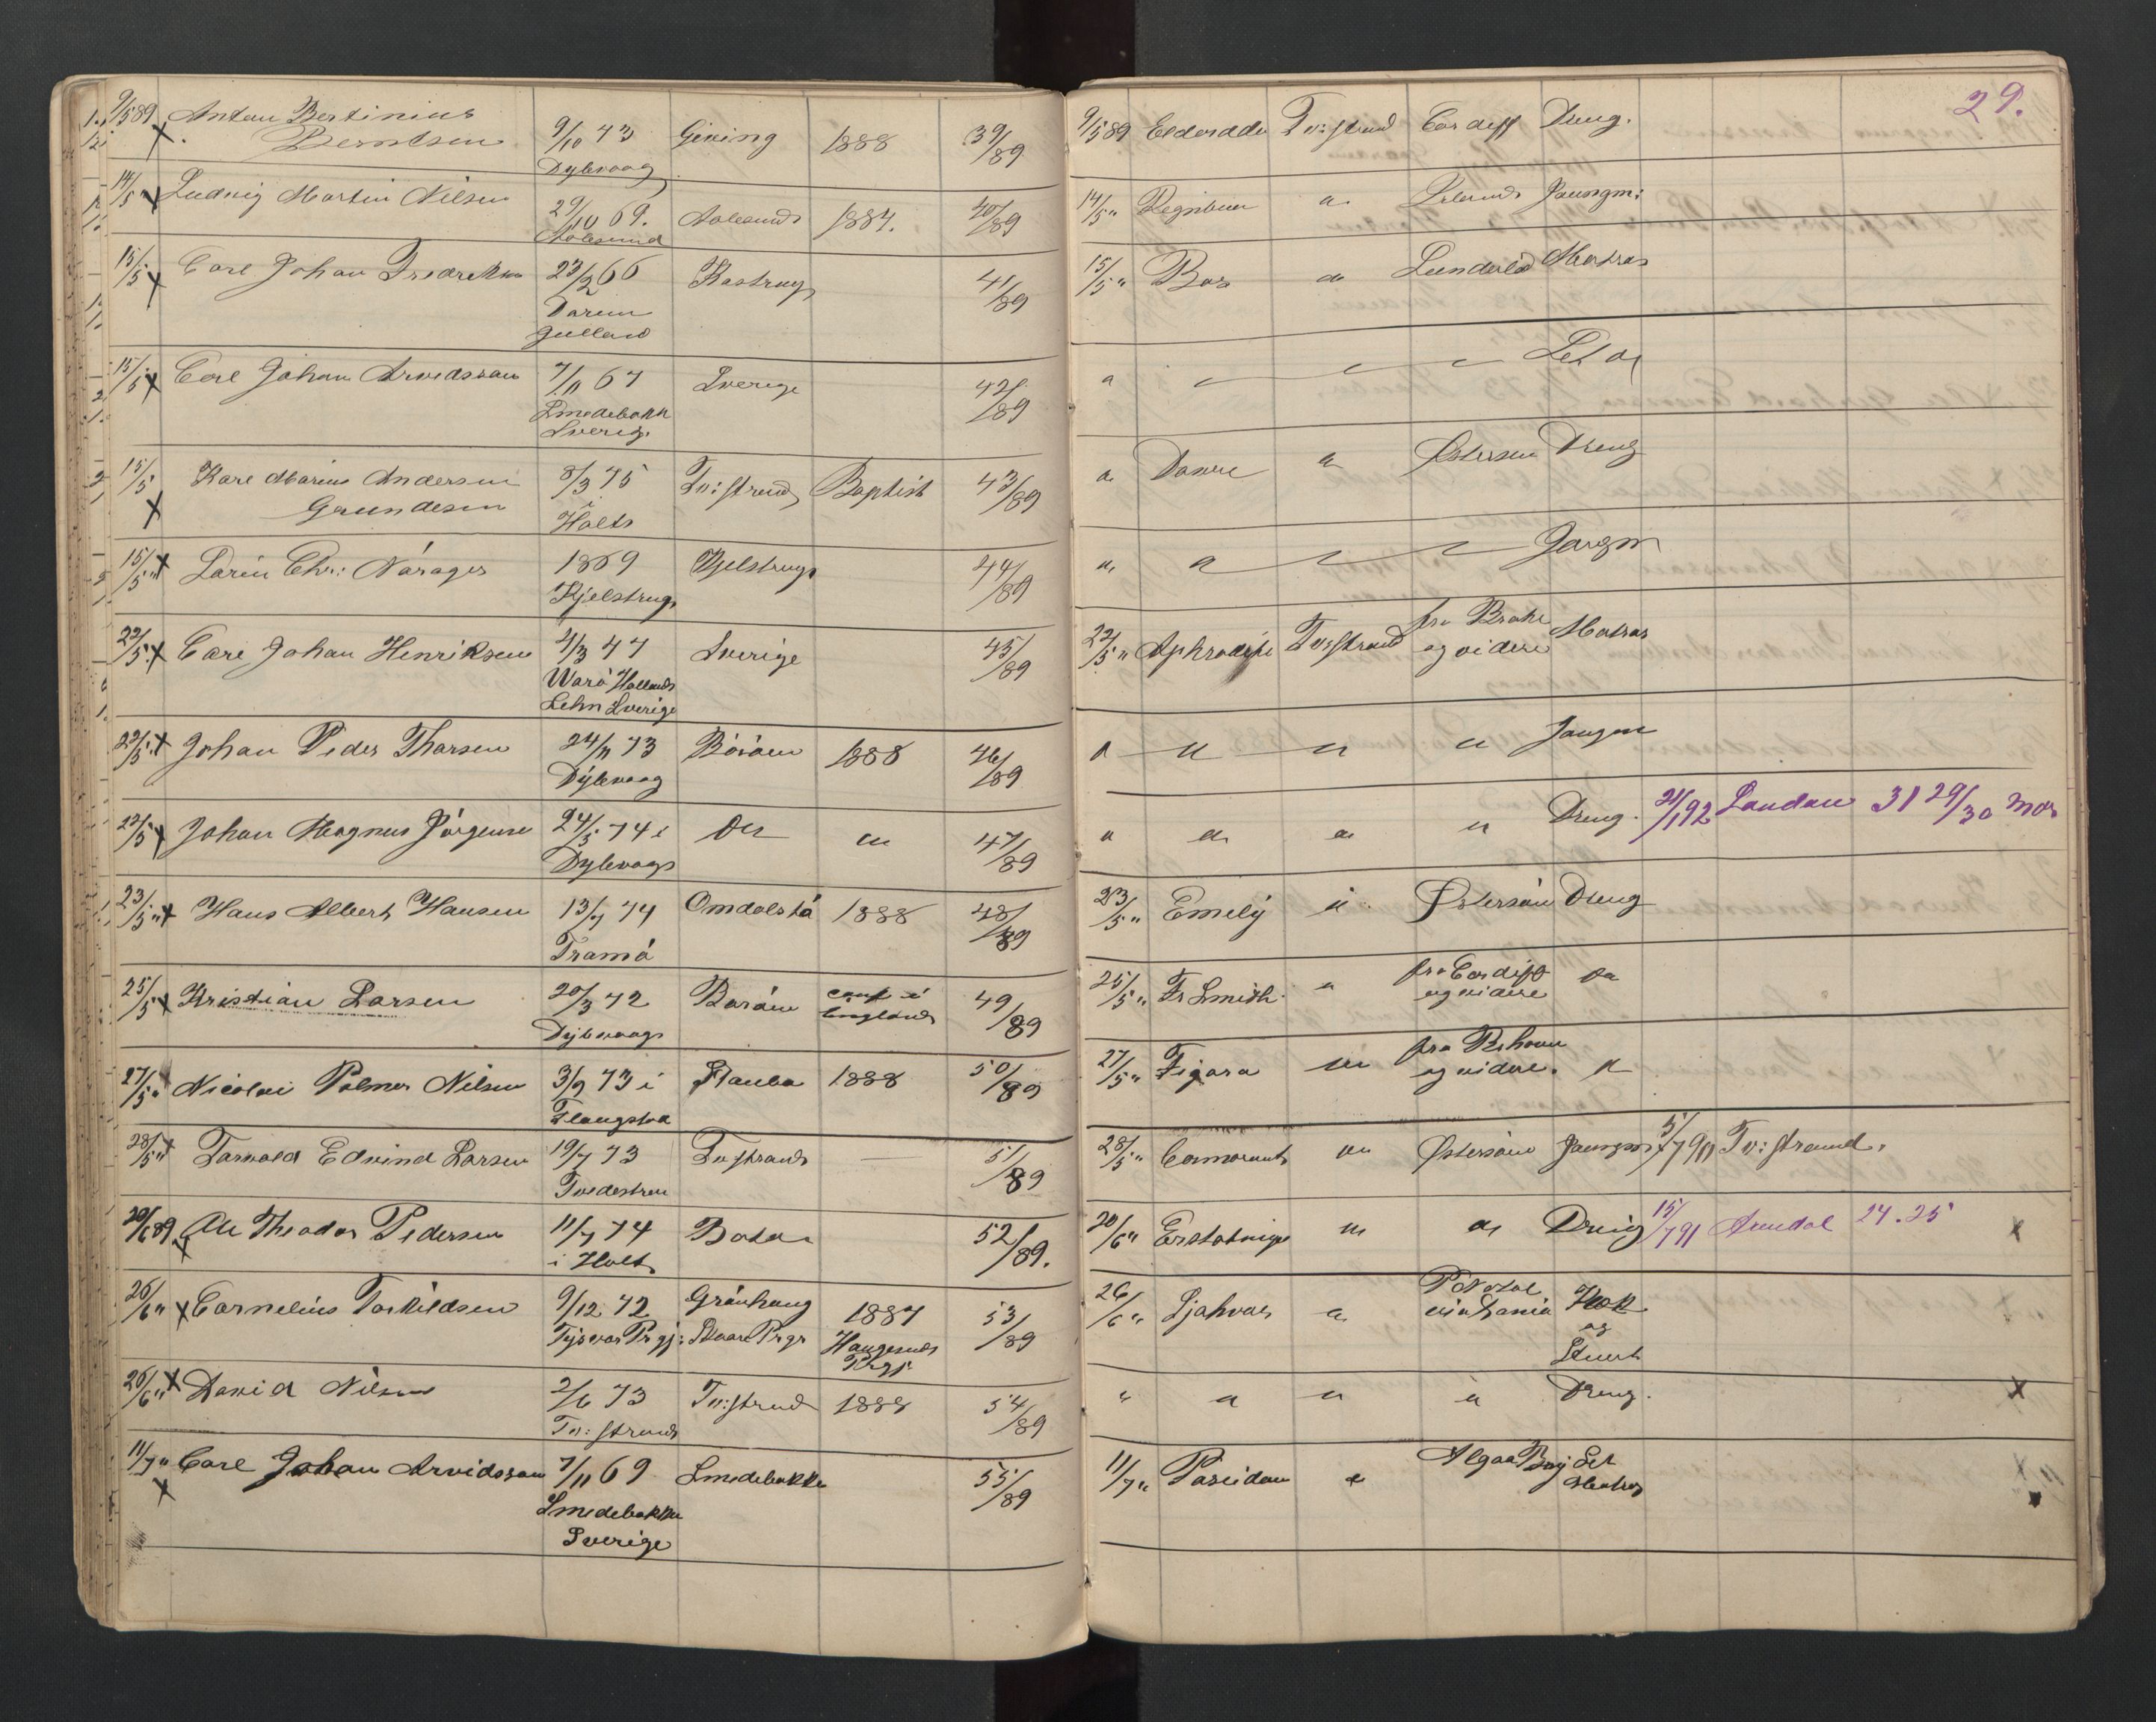 29.
9/5 89 Anton Bertinius Berntsen 9/10 73 Dybvaag Gieving 1888 39/89 9/5 89 Eldorado Tv:strand Cardiff Dreng.
14/5 " Ludvig Martin Nilsen 29/10 69. Aalesund Aalesund 1884. 40/89 14/5 " " Jaungm:
15/5 Carl Johan Fredriksen 23/2 66 Jylland Kastrup 41/89 15/5 " " Matros
15/5 Carl Johan Arvidsson 7/11 67 Smedebakk Sverig. Sverige 42/89 " " " " Let
15/5 Karl Marius Andersen Grundesen 8/3 75 i Holt Tv:strand Baptist 43/89 " " Østersøen Dreng
15/5 " Chr: 1869 Kjelstrup Kjelstrup 44/89 " " " " Jungm
22/5 Carl Johan Henriksen 4/3 47 Warö Hallands Lehn Sverige Sverige 45/89 22/5 " Aphrodite Tvestrand fra og videre Matros
22/5 Johan Peder Tharsen 24/11 73 Dybvaag Boröen 1888 46/89 " " " " Jungm
22/5 Johan Magnus Jörgensen 24/5 74 i Dybvaag do " 47/89 " " " " Dreng. 21/1 92 London 31 29/30 mdr
23/5 " Hans Albert Hansen 13/7 74 Tromö Omdalstø 1888 48/89 23/5 " Emely " Østersöen Dreng
25/5 Kristian Larsen 20/3 72 Dybvaag Boröen conf i England 49/89 25/5 " Fr Smith " fra Cardiff og videre do
27/5 " Nicolai Palmer Nilsen 3/9 73 i Stauba 1888 50/89 27/5 " Figaro " fra og videre. "
28/5 " Torvald Edvind Larsen 19/7 73 Tvedestran Tvstrand — 51/89 28/5 " Cormorant " Østersöen Jaungm 5/7 90 Tv:strand.
20/6 89 Ole Theodor Pedersen 11/7 74 i Holt Bota 52/89. 20/6 " " " Dreng 15/7 91 Arendal 24.25
26/6 " Cornelius Torkildsen 9/12 72 Tysvær Prgj: Grönhaug Prgj 1887 Haugesunds Prgj 53/89 26/6 " " Natal via Kok og Stuert
26/6 " David Nilsen 2/6 73 Tv:strand Tv:strand 1888 54/89 " " " " Dreng.
11/7 " Carl Johan Arvidsson 7/11 69 Smedebakke Sverige Smedebakke 55/89 11/7 " Poseidon " Algoa Bay Let Matros